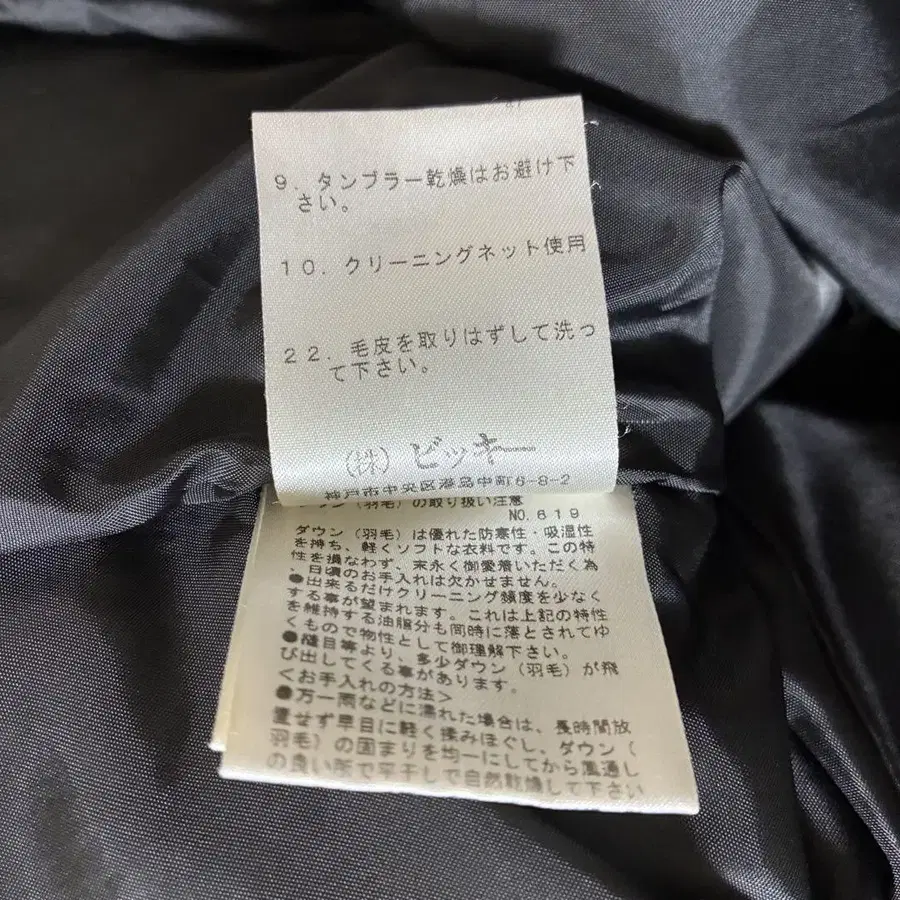 9. タンブラー乾燥はお避け下
さい。
10. クリーニングネット使用
22. 毛皮を取りはずして洗っ
て下さい。
(株) ビッキー
神戸市中央区港島中町6-8-2
ダウン(羽毛)の取り扱い注意
NO.619
ダウン(羽毛)は優れた防寒性・吸湿性
を持ち、軽くソフトな衣料です。この特
性を損なわず、末永く御愛着いただく為
、日頃のお手入れは欠かせません。
●出来るだけクリーニング頻度を少なく
する事が望まれます。これは上記の特性
を維持する油脂分も同時に落とされてゆ
くもので物性として御理解下さい。
●縫目等より、多少ダウン(羽毛)が飛
び出してくる事があります。
<お手入れの方法>
●万一雨などに濡れた場合は、長時間放
置せず早目に軽く揉みほぐし、ダウン(
羽毛)の固まりを均一にしてから風通し
の良い所で平干しで自然乾燥して下さい